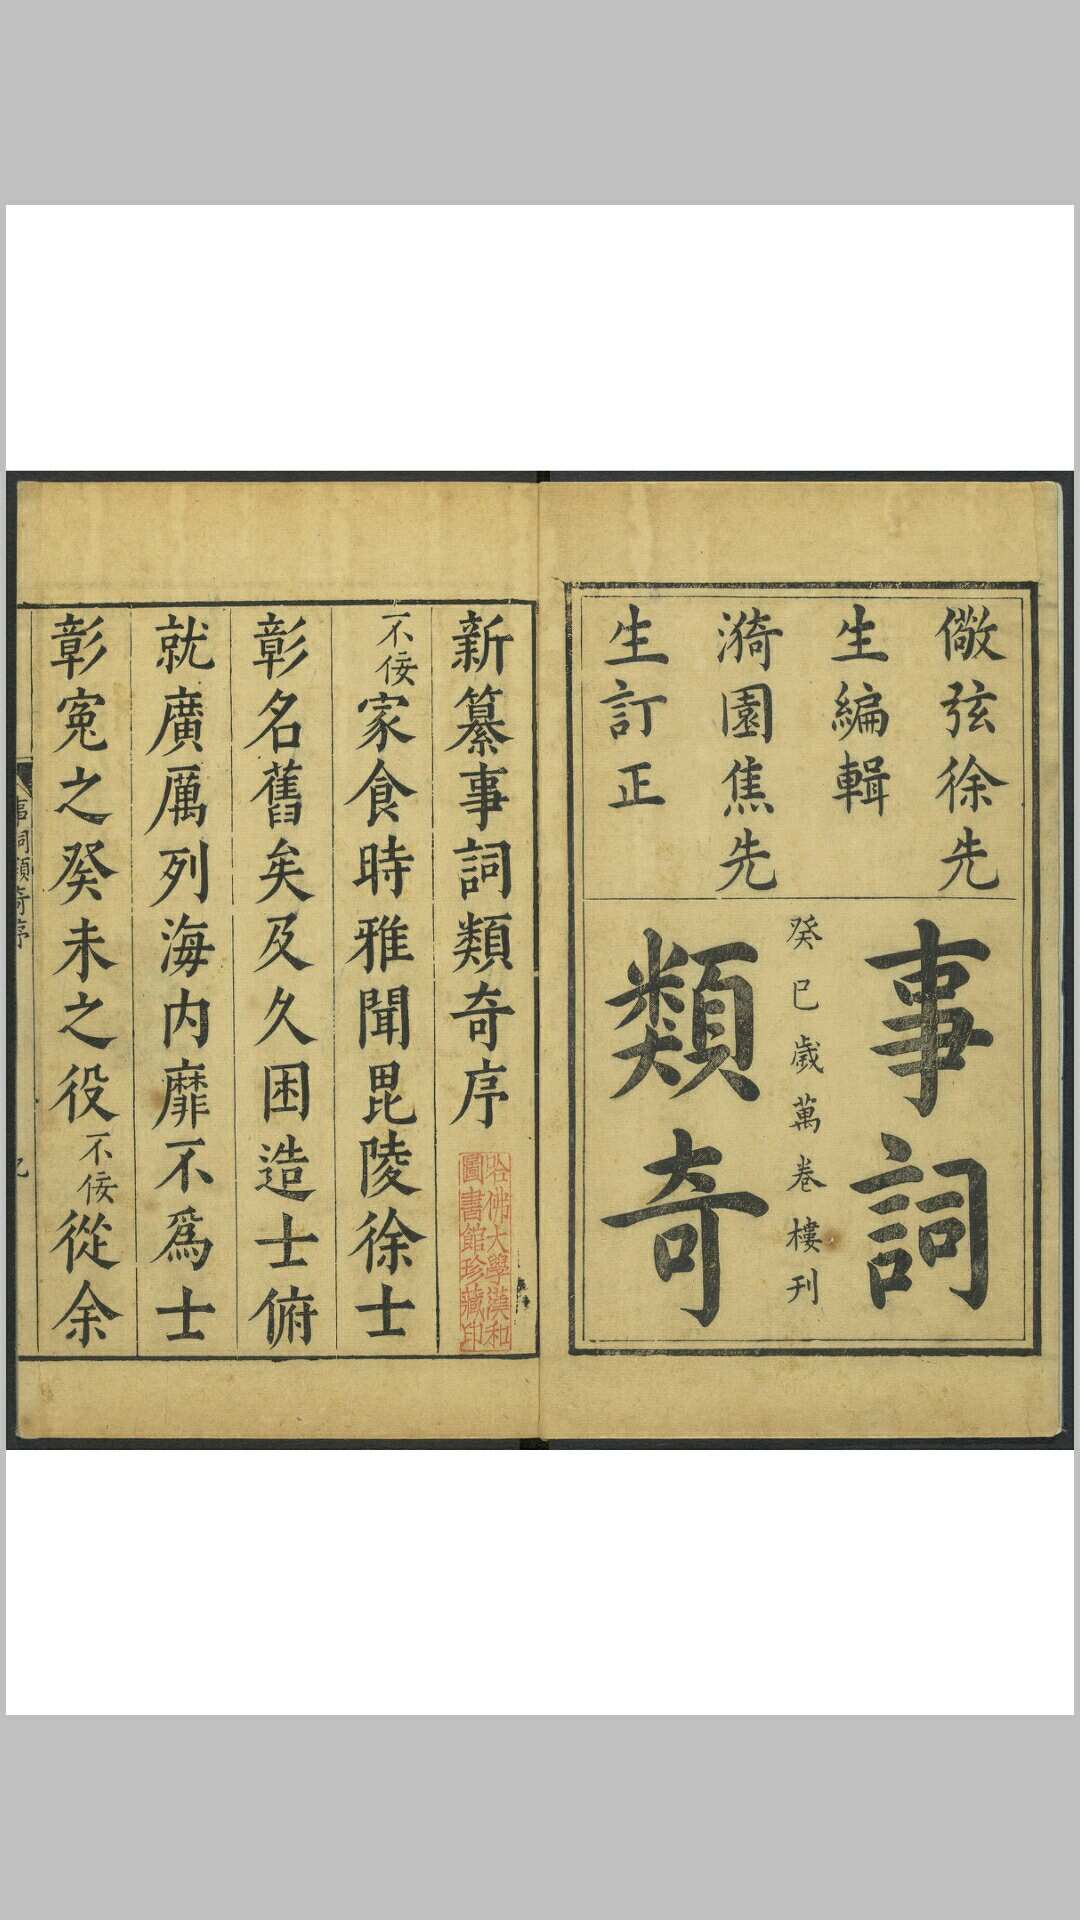 儆弦徐先
生編輯
漪園焦先
生訂正
事詞
癸巳歲萬卷樓刊
類奇
新纂事詞類奇序
哈佛大學漢和
圖書館珍藏印
不佞家食時雅聞毘陵徐士
彰名舊矣及久困造士俯
就廣厲列海内靡不爲士
彰寃之癸未之役不佞從余
事詞類奇序